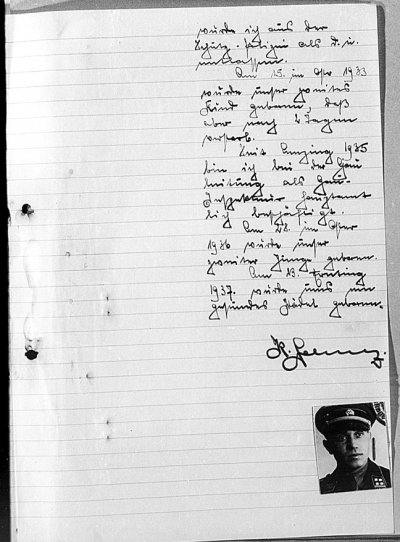 wurde ich aus der
Schutz-Polizei als D.U.
entlassen.
Am 15. im 1933
wurde unser zweites
Kind geboren, das
aber nach 2 Tagen
verstarb.
Seit 1935
bin ich bei der Gau-
leitung als Gau-
Inspekteur hauptamt
lich beschäftigt.
Am 22. im
1936 wurde unser
zweiter Junge geboren.
Am 13.
1937. wurde uns ein
gesundes Mädel geboren.